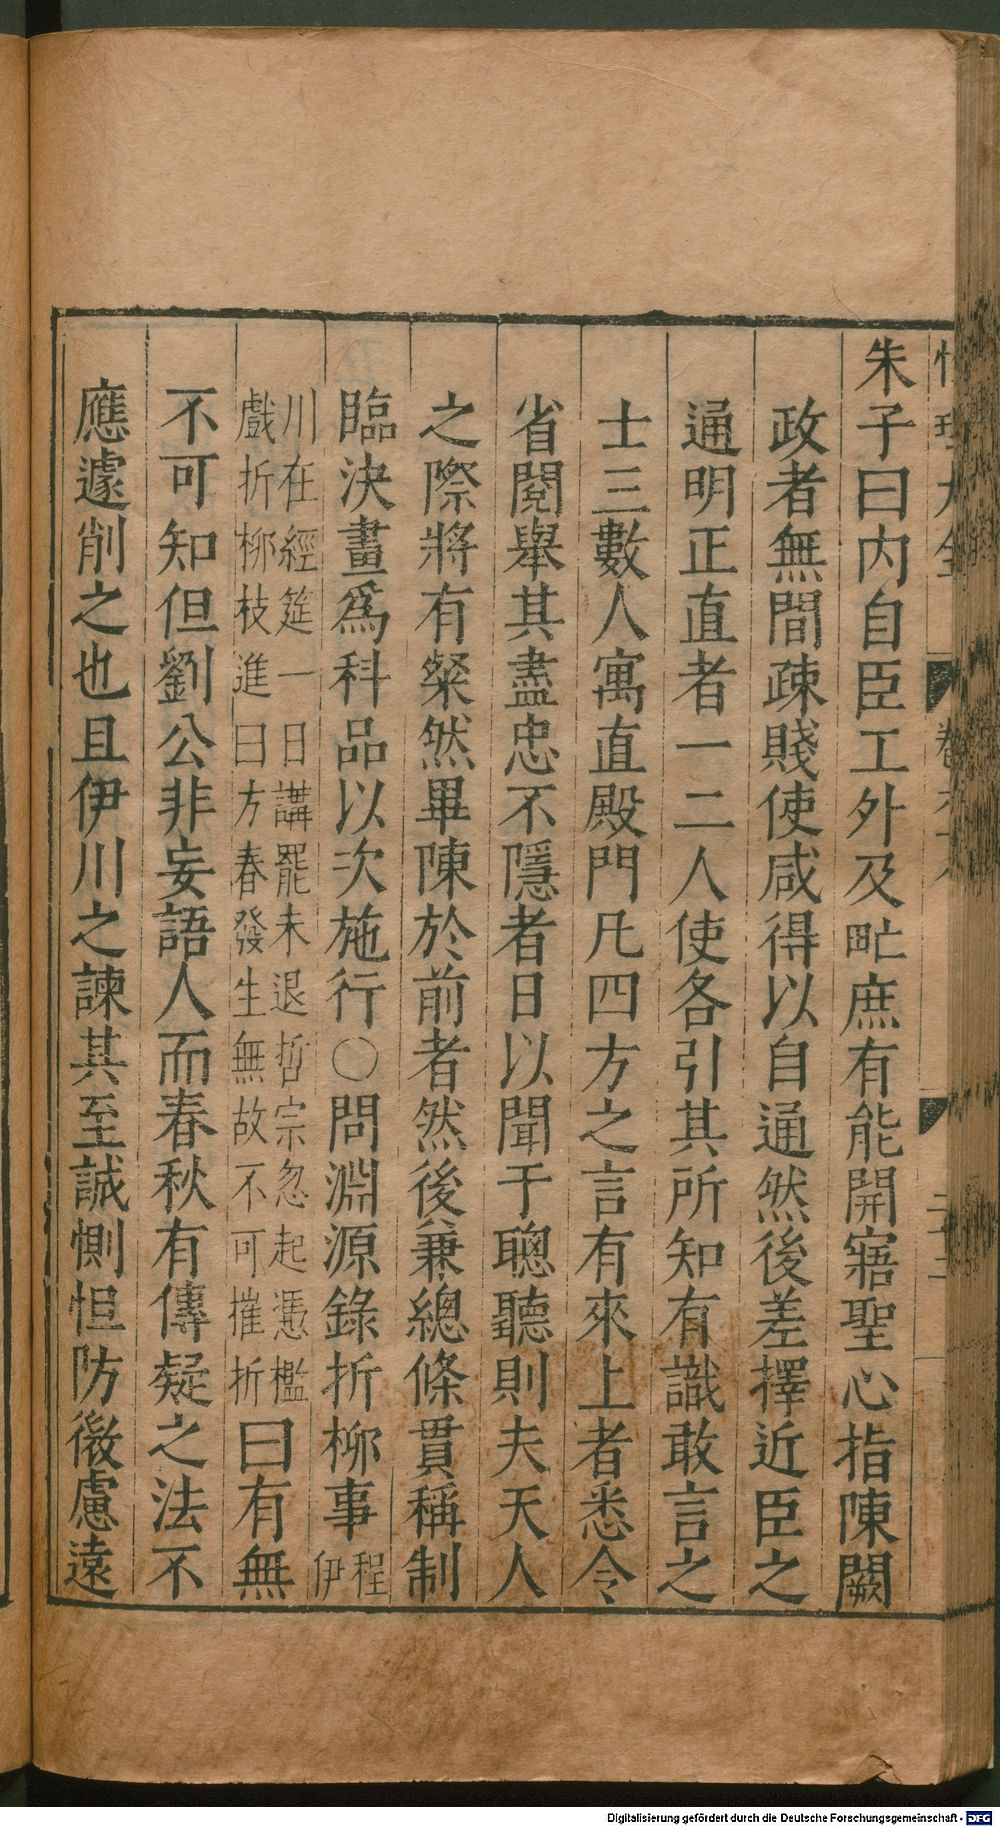 朱子曰內自臣工外及甿庶有能開寤聖心指陳闕
政者無間疎賤使咸得以自通然後差擇近臣之
通明正直者一二人使各引其所知有識敢言之
士三數人寓直殿門凡四方之言有來上者悉令
省閱舉其盡忠不隱者日以聞于聰聽則夫天人
之際將有粲然畢陳於前者然後兼總條貫稱制
臨決畫爲科品以次施行○問淵源錄折栁事程伊
川在經筵一日講罷未退哲宗忽起憑檻戲折栁枝進曰方春發生無故不可摧折曰有無
不可知但劉公非妄語人而春秋有傳疑之法不
應遽削之也且伊川之諫其至誠惻怛防微慮遠
性理大全 卷六十 二十二
Digitalisierung gefördert durch die Deutsche Forschungsgemeinschaft - DFG